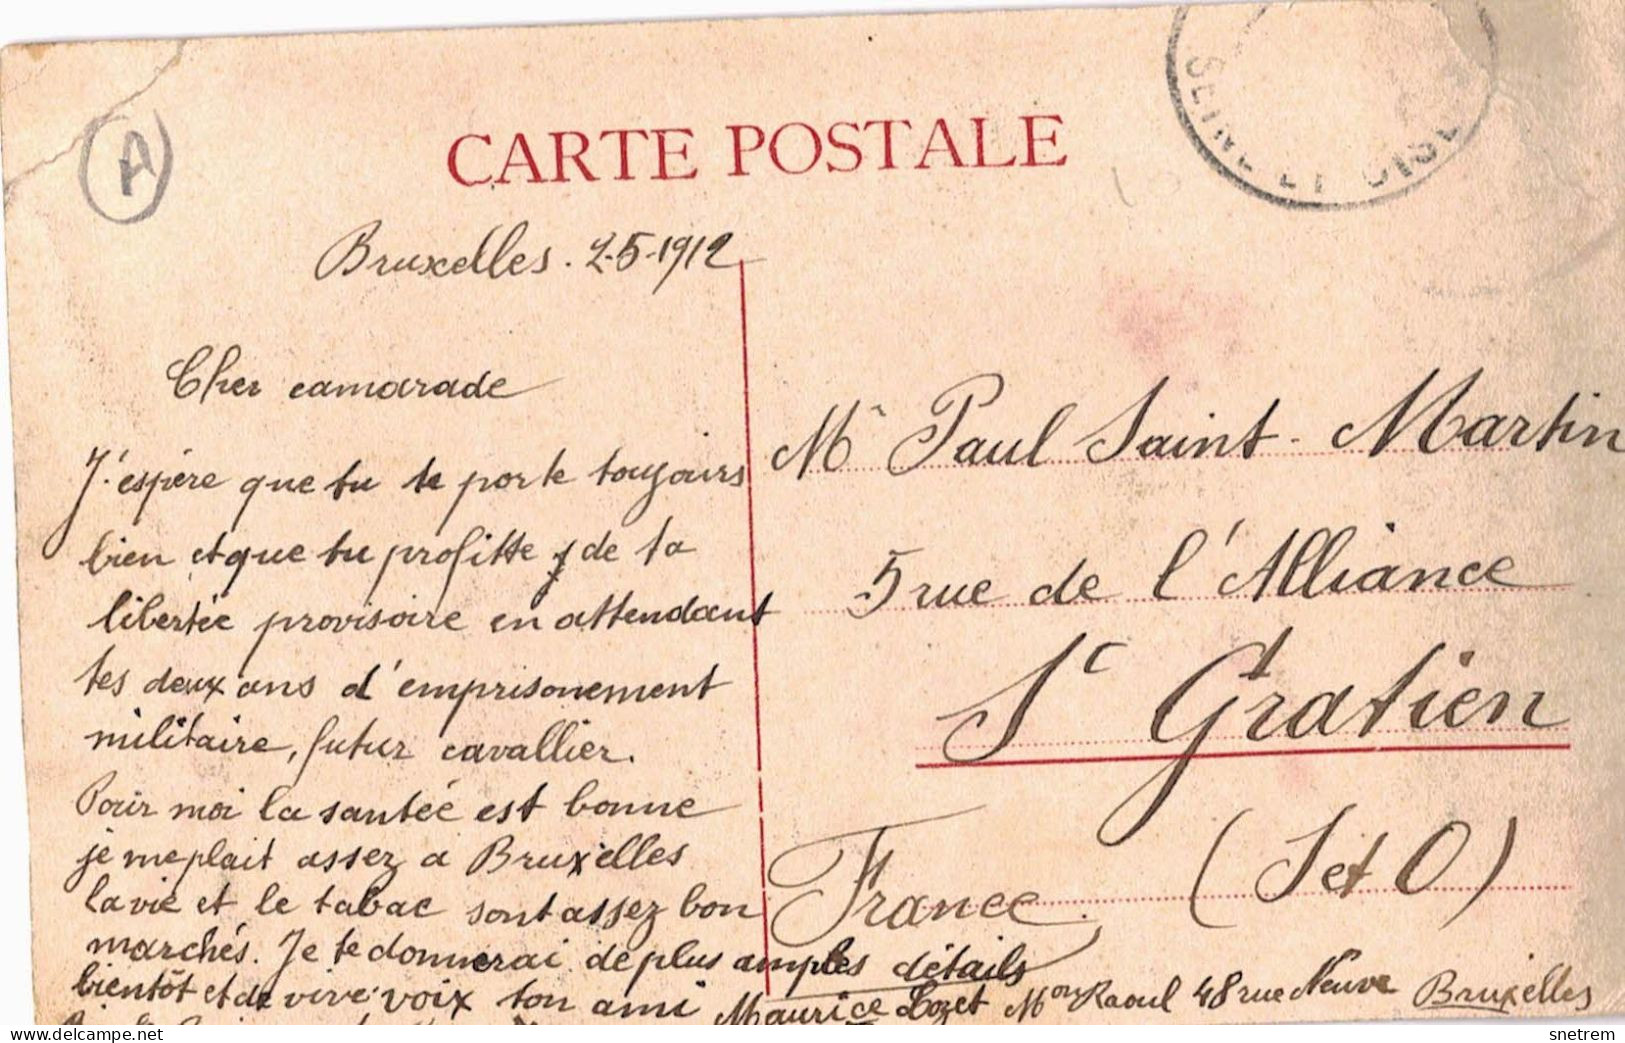 SEINE ET OISE
A
CARTE POSTALE
Bruxelles. 2-5-1912
Cher camarade
J'espère que tu te porte toujours
bien et que tu profitte de ta
libertée provisoire en attendant
tes deux ans d'emprisonement
militaire, futur cavallier.
Pour moi la santée est bonne
je me plait assez a Bruxelles
la vie et le tabac sont assez bon
marchés. Je te donnerai de plus amples détails
bientôt et de vive voix ton ami Maurice Lozet Mon Raoul 48 rue Neuve Bruxelles
Mr Paul Saint-Martin
5 rue de l'Alliance
St Gratien
France (S et O)
snetrem